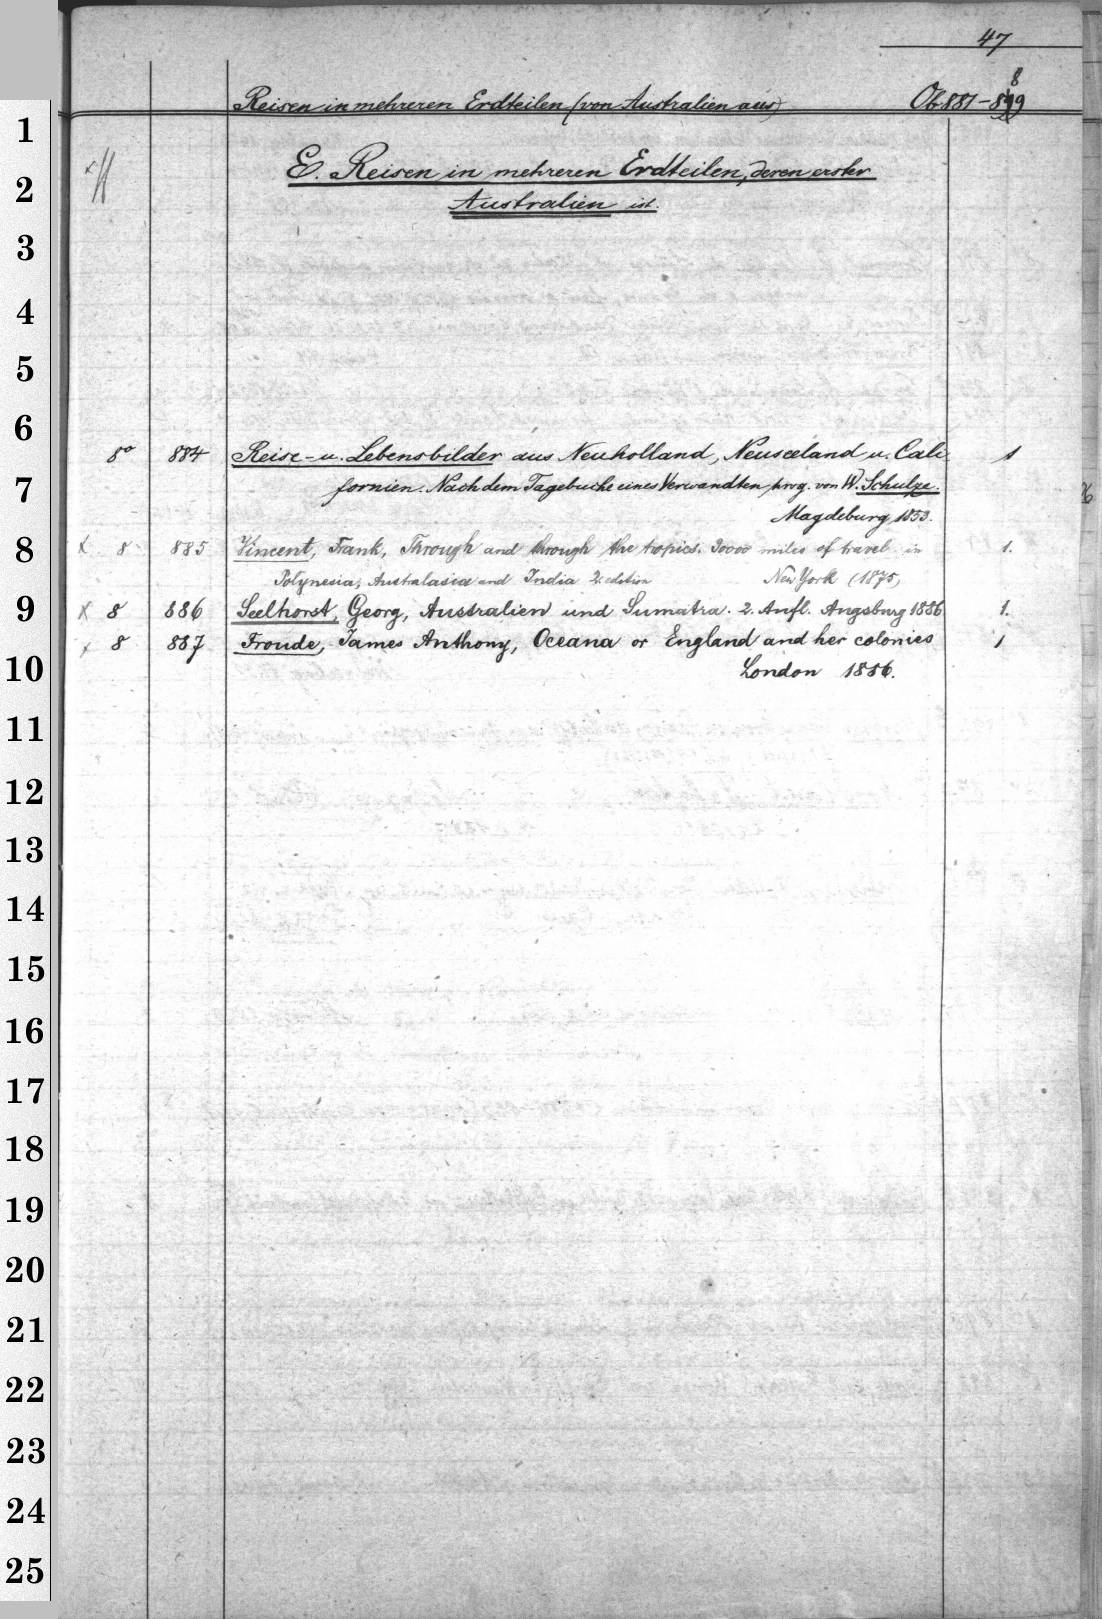 47
Reisen in mehreren Erdteilen (von Australien aus) Ob 881-889
E. Reisen in mehreren Erdteilen, deren erster
Australien ist.
8° 884 Reise- u. Lebensbilder aus Neuholland, Neuseeland u. Cali- 1
fornien. Nach dem Tagebuche eines Verwandten hrsg. von W. Schulze.
Magdeburg 1853.
x 8 885 Vincent, Frank, Through and through the tropics. 30000 miles of travel in 1.
Polynesia, Australasia and India 2 edition New York (1875)
x 8 886 Seelhorst, Georg, Australien und Sumatra. 2. Aufl. Augsburg 1886 1.
x 8 887 Froude, James Anthony, Oceana or England and her colonies 1
London 1886.
1
2
3
4
5
6
7
8
9
10
11
12
13
14
15
16
17
18
19
20
21
22
23
24
25